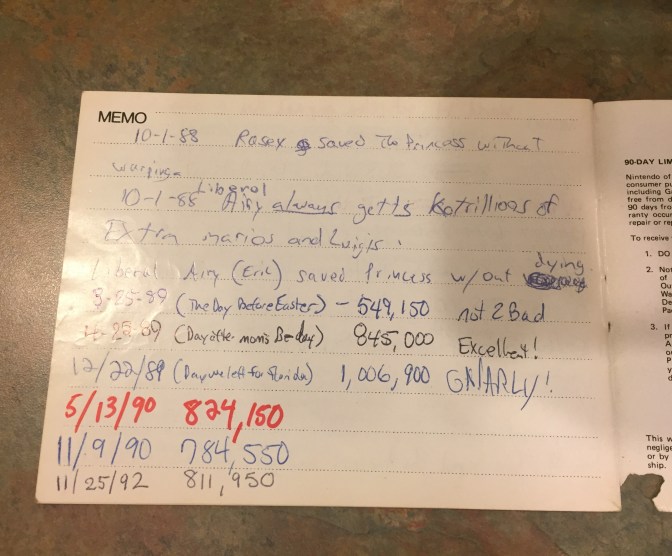 MEMO
10-1-88 Rosey saved The Princess without
warping
10-1-88 Liberal Airy always getts Kotrillions of
Extra marios and Luigis.
Liberal Airy (Eric) saved Princess w/out dying
3-25-89 (The Day Before Easter) - 549,150 not 2 Bad
4-25-89 (Day after mom's B-day) 845,000 Excellent!
12/22/89 (Day we left for Florida) 1,006,900 GNARLY!
5/13/90 824,150
11/9/90 784,550
11/25/92 811,950
90-DAY LIM
Nintendo of
consumer pu
including G
free from d
90 days fro
ranty occur
repair or rep
To receive
1. DO
2. Not
of
Ou
Wa
De
Pa
3. If
pr
A
yo
This w
neglige
or by
ship.